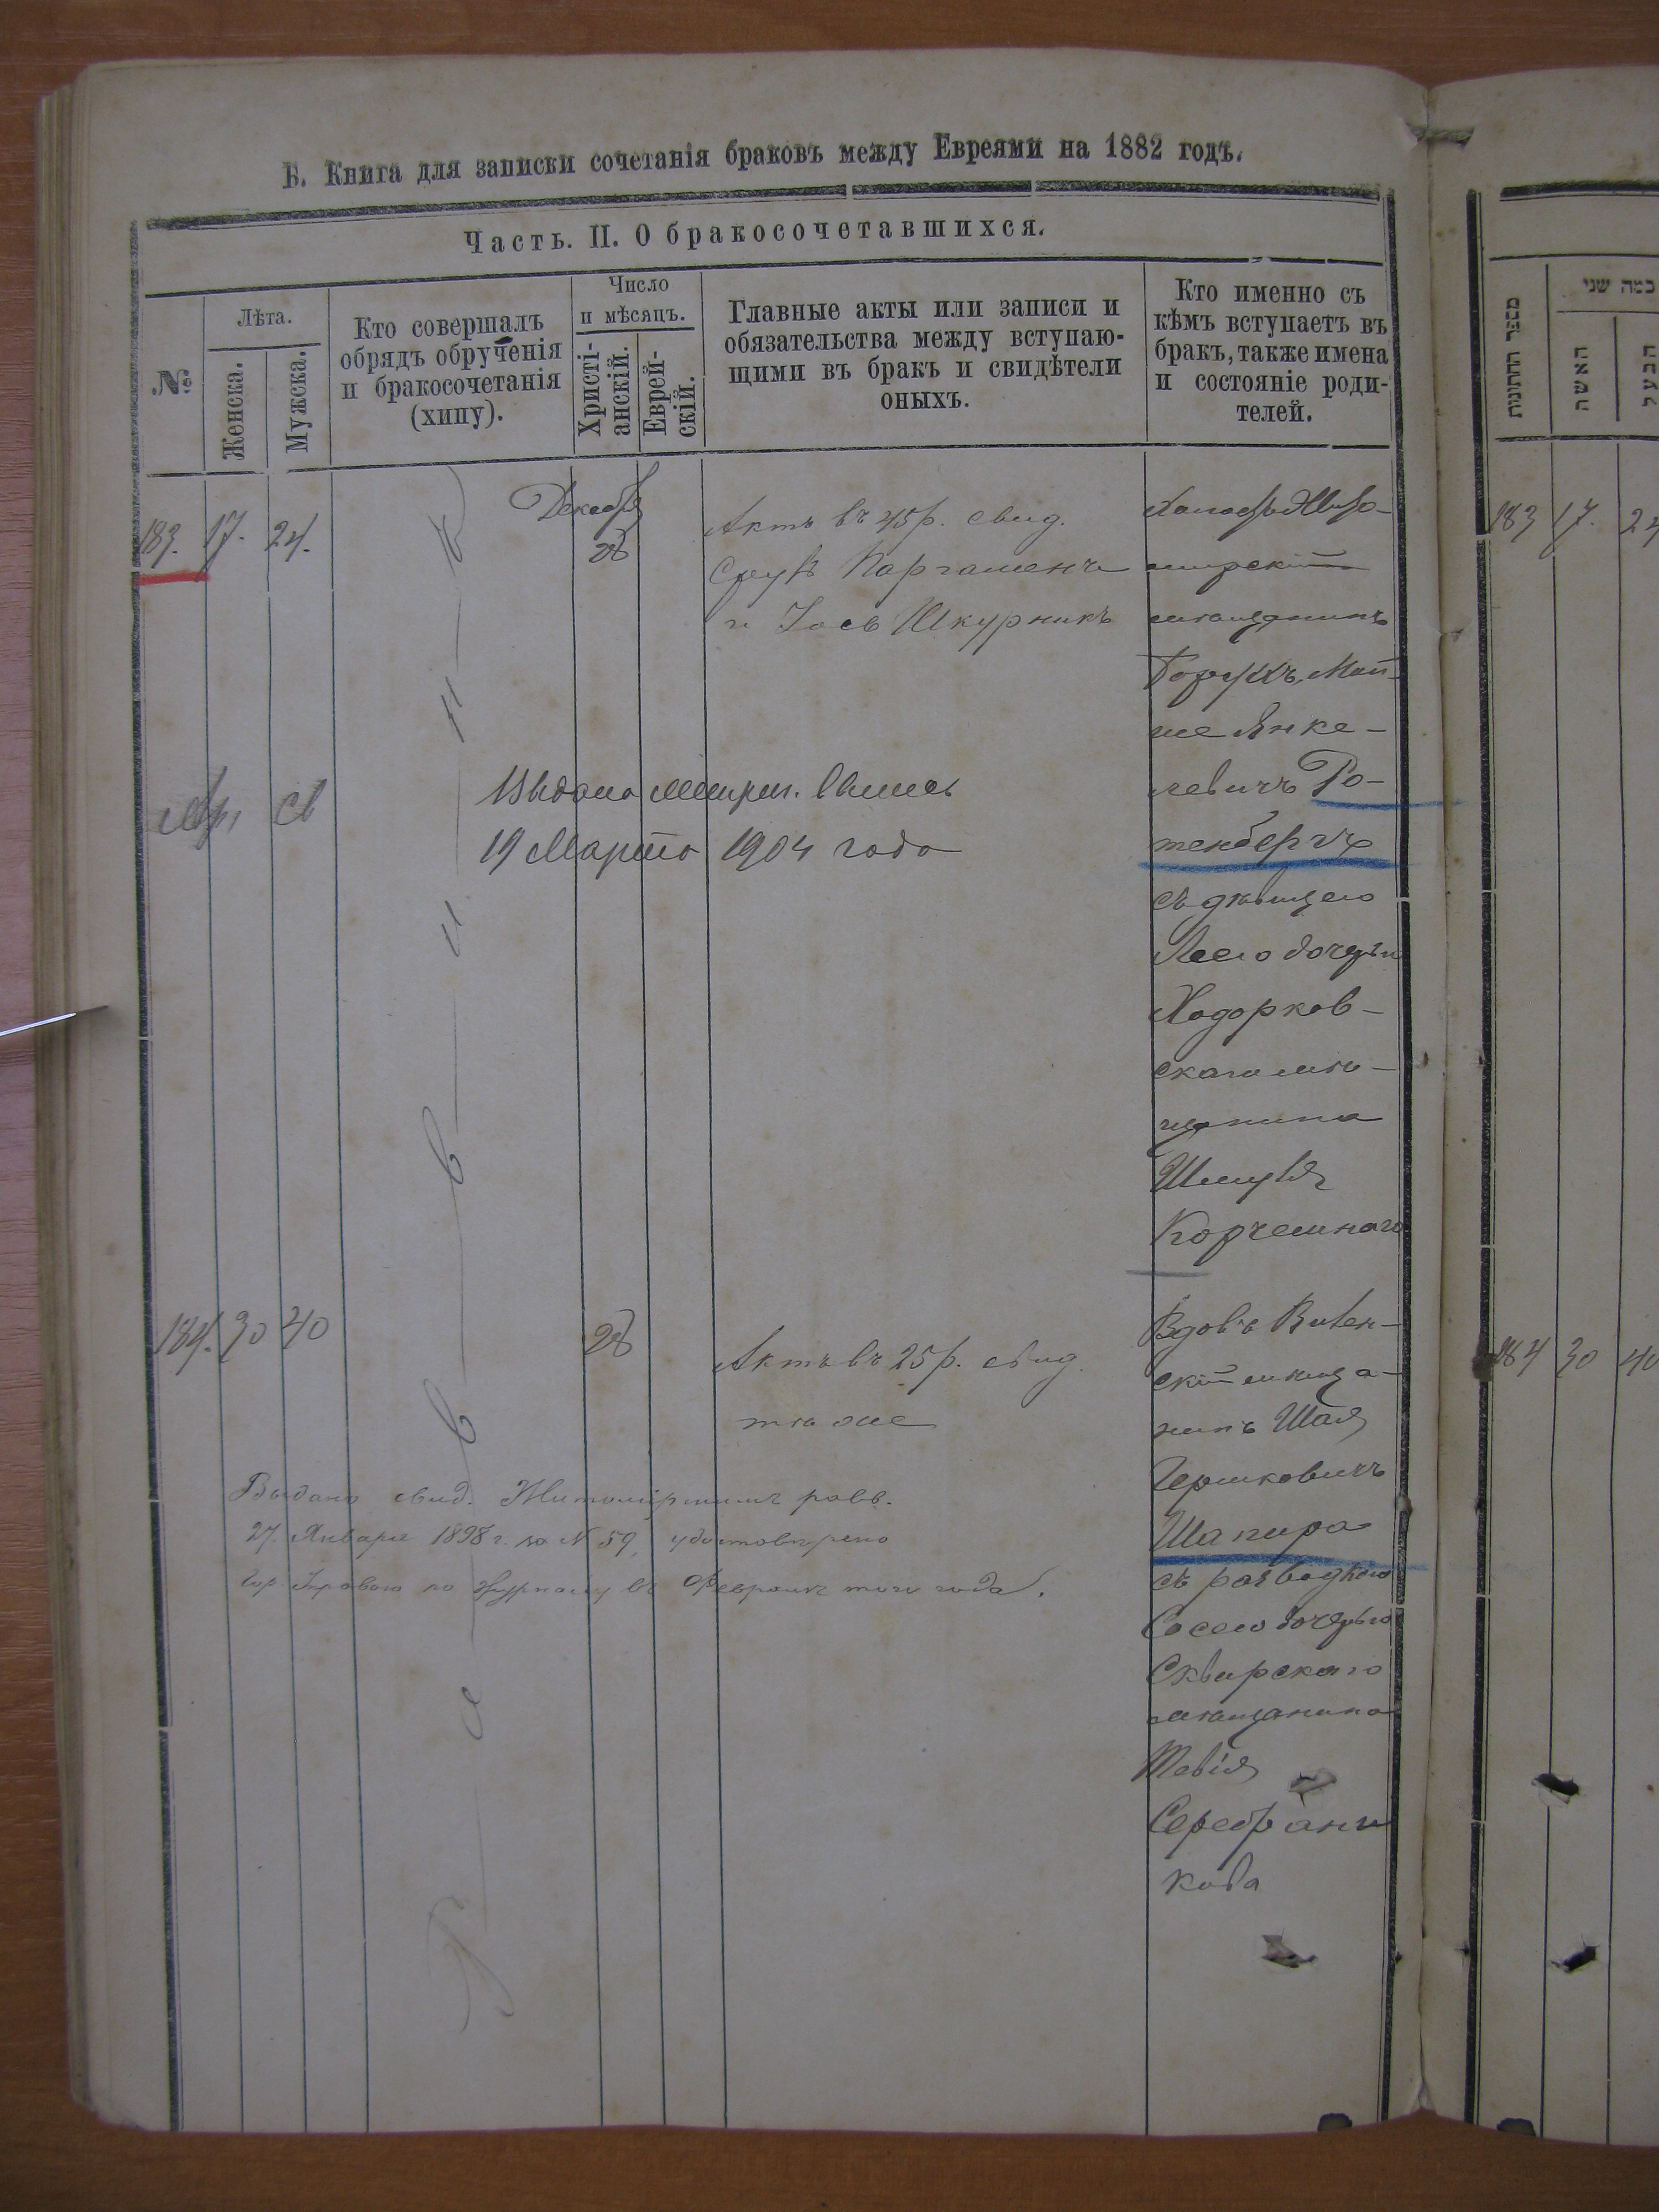 Б. Книга для записки сочетанія браковъ между Евреями на 1882 годъ.
Часть. II. О бракосочетавшихся.
№
Лѣта.
Женска.
Мужска.
Кто совершалъ
обрядъ обрученія
и бракосочетанія
(хипу).
Число
и мѣсяцъ.
Христі-
анскій.
Еврей-
скій.
Главные акты или записи и
обязательства между вступаю-
щими въ бракъ и свидѣтели
оныхъ.
Кто именно съ
кѣмъ вступаетъ въ
бракъ, также имена
и состояніе роди-
телей.
183. 17. 24.
Декабр
28
Актъ въ 45 р. свид.
Сруль
и Іось Шкурникъ
Холостъ Жито-
мирскій
мѣщанинъ
Борухъ, Мой-
ше Янке-
левичъ Ро-
тенбергъ
съ дѣвицею
дочерью
Ходорков-
скаго мѣ-
щанина
Шмуля
Корчемнаго
Выдана метрич. выпись
19 Марта 1904 года
184. 30 40
28
Актъ въ 25 р. свид.
тѣ же
Вдовъ
скій мѣща-
нинъ Шая
Гершковичъ
Шапира
съ разводкою
Сосею дочерью
Сквирскаго
мѣщанина
Тевія
Серебрани
кова
Выдано свид. Житомірскимъ равв.
27 Января 1898 г. за № 59, удостовѣрено
Гор. Управою по журналу въ Февралѣ того года.
Раввинъ
מספר החתונות
כמה שני
האשה
הבעל
183 17. 24
184 30 40